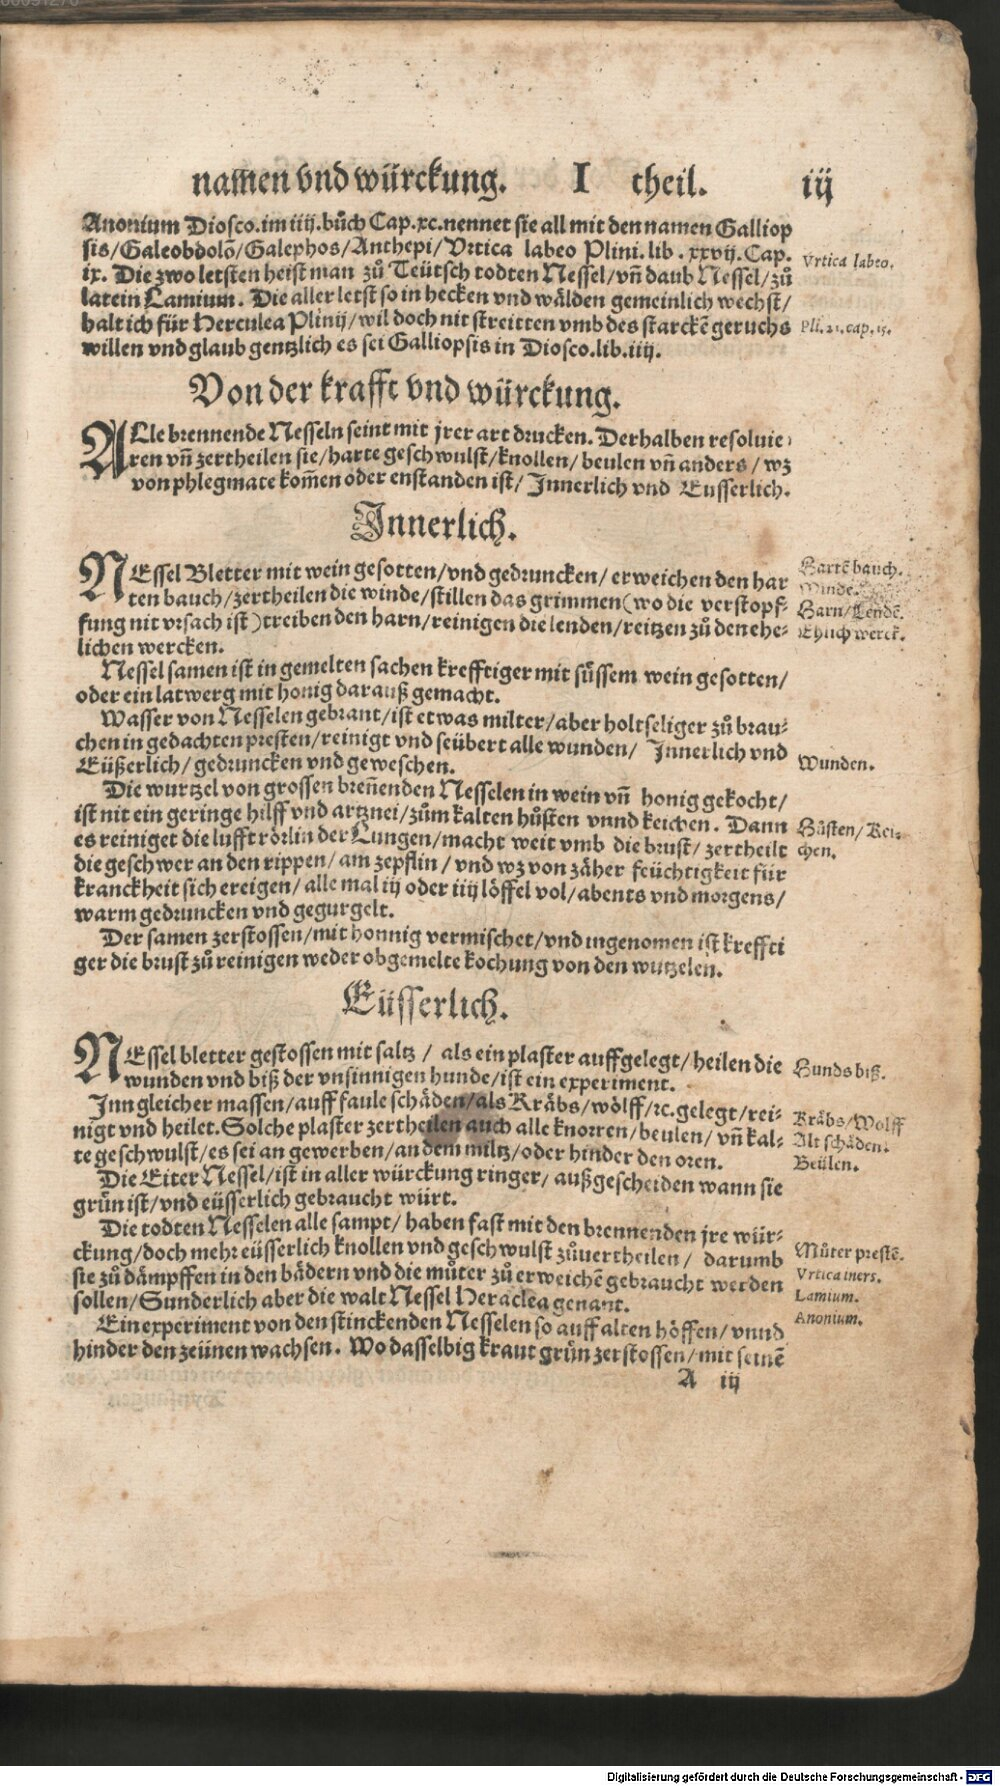 namen vnd würckung. I theil. iij
Anonium Diosco. im iiij. bůch Cap. xc. nennet sie all mit den namen Galliop
sis/Galeobdolõ/Galephos/Anthepi/Vrtica labeo Plini. lib. xxvij. Cap.
ix. Die zwo letsten heist man zů Teütsch todten Nessel/vñ daub Nessel/zů
latein Lamium. Die aller letst so in hecken vnd wälden gemeinlich wechst/
halt ich für Herculea Plinij/wil doch nit streitten vmb des starckẽ geruchs
willen vnd glaub gentzlich es sei Galliopsis in Diosco. lib. iiij.
Vrtica labeo.
Pli. 21. cap. 15.
Von der krafft vnd würckung.
ALle brennende Nesseln seint mit jrer art drucken. Derhalben resoluie
ren vñ zertheilen sie/harte geschwulst/knollen/beulen vñ anders/wz
von phlegmate kom̃en oder enstanden ist/Innerlich vnd Eusserlich.
Innerlich.
NEssel Bletter mit wein gesotten/vnd gedruncken/erweichen den har
ten bauch/zertheilen die winde/stillen das grimmen(wo die verstopf⸗
fung nit vrsach ist)treiben den harn/reinigen die lenden/reitzen zů den ehe⸗
lichen wercken.
Hartẽ bauch.
Winde.
Harn/Lendẽ.
Ehlich werck.
Nessel samen ist in gemelten sachen krefftiger mit süssem wein gesotten/
oder ein latwerg mit honig darauß gemacht.
Wasser von Nesselen gebrant/ist etwas milter/aber holtseliger zů brau⸗
chen in gedachten presten/reinigt vnd seübert alle wunden/ Innerlich vnd
Eüßerlich/gedruncken vnd geweschen.
Wunden.
Die wurtzel von grossen breñenden Nesselen in wein vñ honig gekocht/
ist nit ein geringe hilff vnd artznei/zům kalten hůsten vnnd keichen. Dann
es reiniget die lufft rörlin der Lungen/macht weit vmb die brust/zertheilt
die geschwer an den rippen/am zepflin/vnd wz von zäher feüchtigkeit für
kranckheit sich ereigen/alle mal iij oder iiij löffel vol/abents vnd morgens/
warm gedruncken vnd gegurgelt.
Hůsten/Kei⸗
chen.
Der samen zerstossen/mit honnig vermischet/vnd ingenomen ist kreffti
ger die brust zů reinigen weder obgemelte kochung von den wutzelen.
Eüsserlich.
NEssel bletter gestossen mit saltz/ als ein plaster auffgelegt/heilen die
wunden vnd biß der vnsinnigen hunde/ist ein experiment.
Hunds biß.
Inn gleicher massen/auff faule schäden/als Kräbs/wölff/ꝛc. gelegt/rei⸗
nigt vnd heilet. Solche plaster zertheilen auch alle knorren/beulen/vñ kal⸗
te geschwulst/es sei an gewerben/an dem miltz/oder hinder den oren.
Kräbs/Wolff
Alt schäden.
Beülen.
Die Eiter Nessel/ist in aller würckung ringer/außgescheiden wann sie
grün ist/vnd eüsserlich gebraucht würt.
Die todten Nesselen alle sampt/haben fast mit den brennenden jre wür⸗
ckung/doch mehr eüsserlich knollen vnd geschwulst zůuertheilen/ darumb
sie zů dämpffen in den bädern vnd die můter zů erweichẽ gebraucht werden
sollen/Sunderlich aber die walt Nessel Heraclea genant.
Můter prestẽ.
Vrtica iners.
Lamium.
Anonium.
Ein experiment von den stinckenden Nesselen so auff alten höffen/vnnd
hinder den zeünen wachsen. Wo dasselbig kraut grün zerstossen/mit seinẽ
A iij
Digitalisierung gefördert durch die Deutsche Forschungsgemeinschaft - DFG